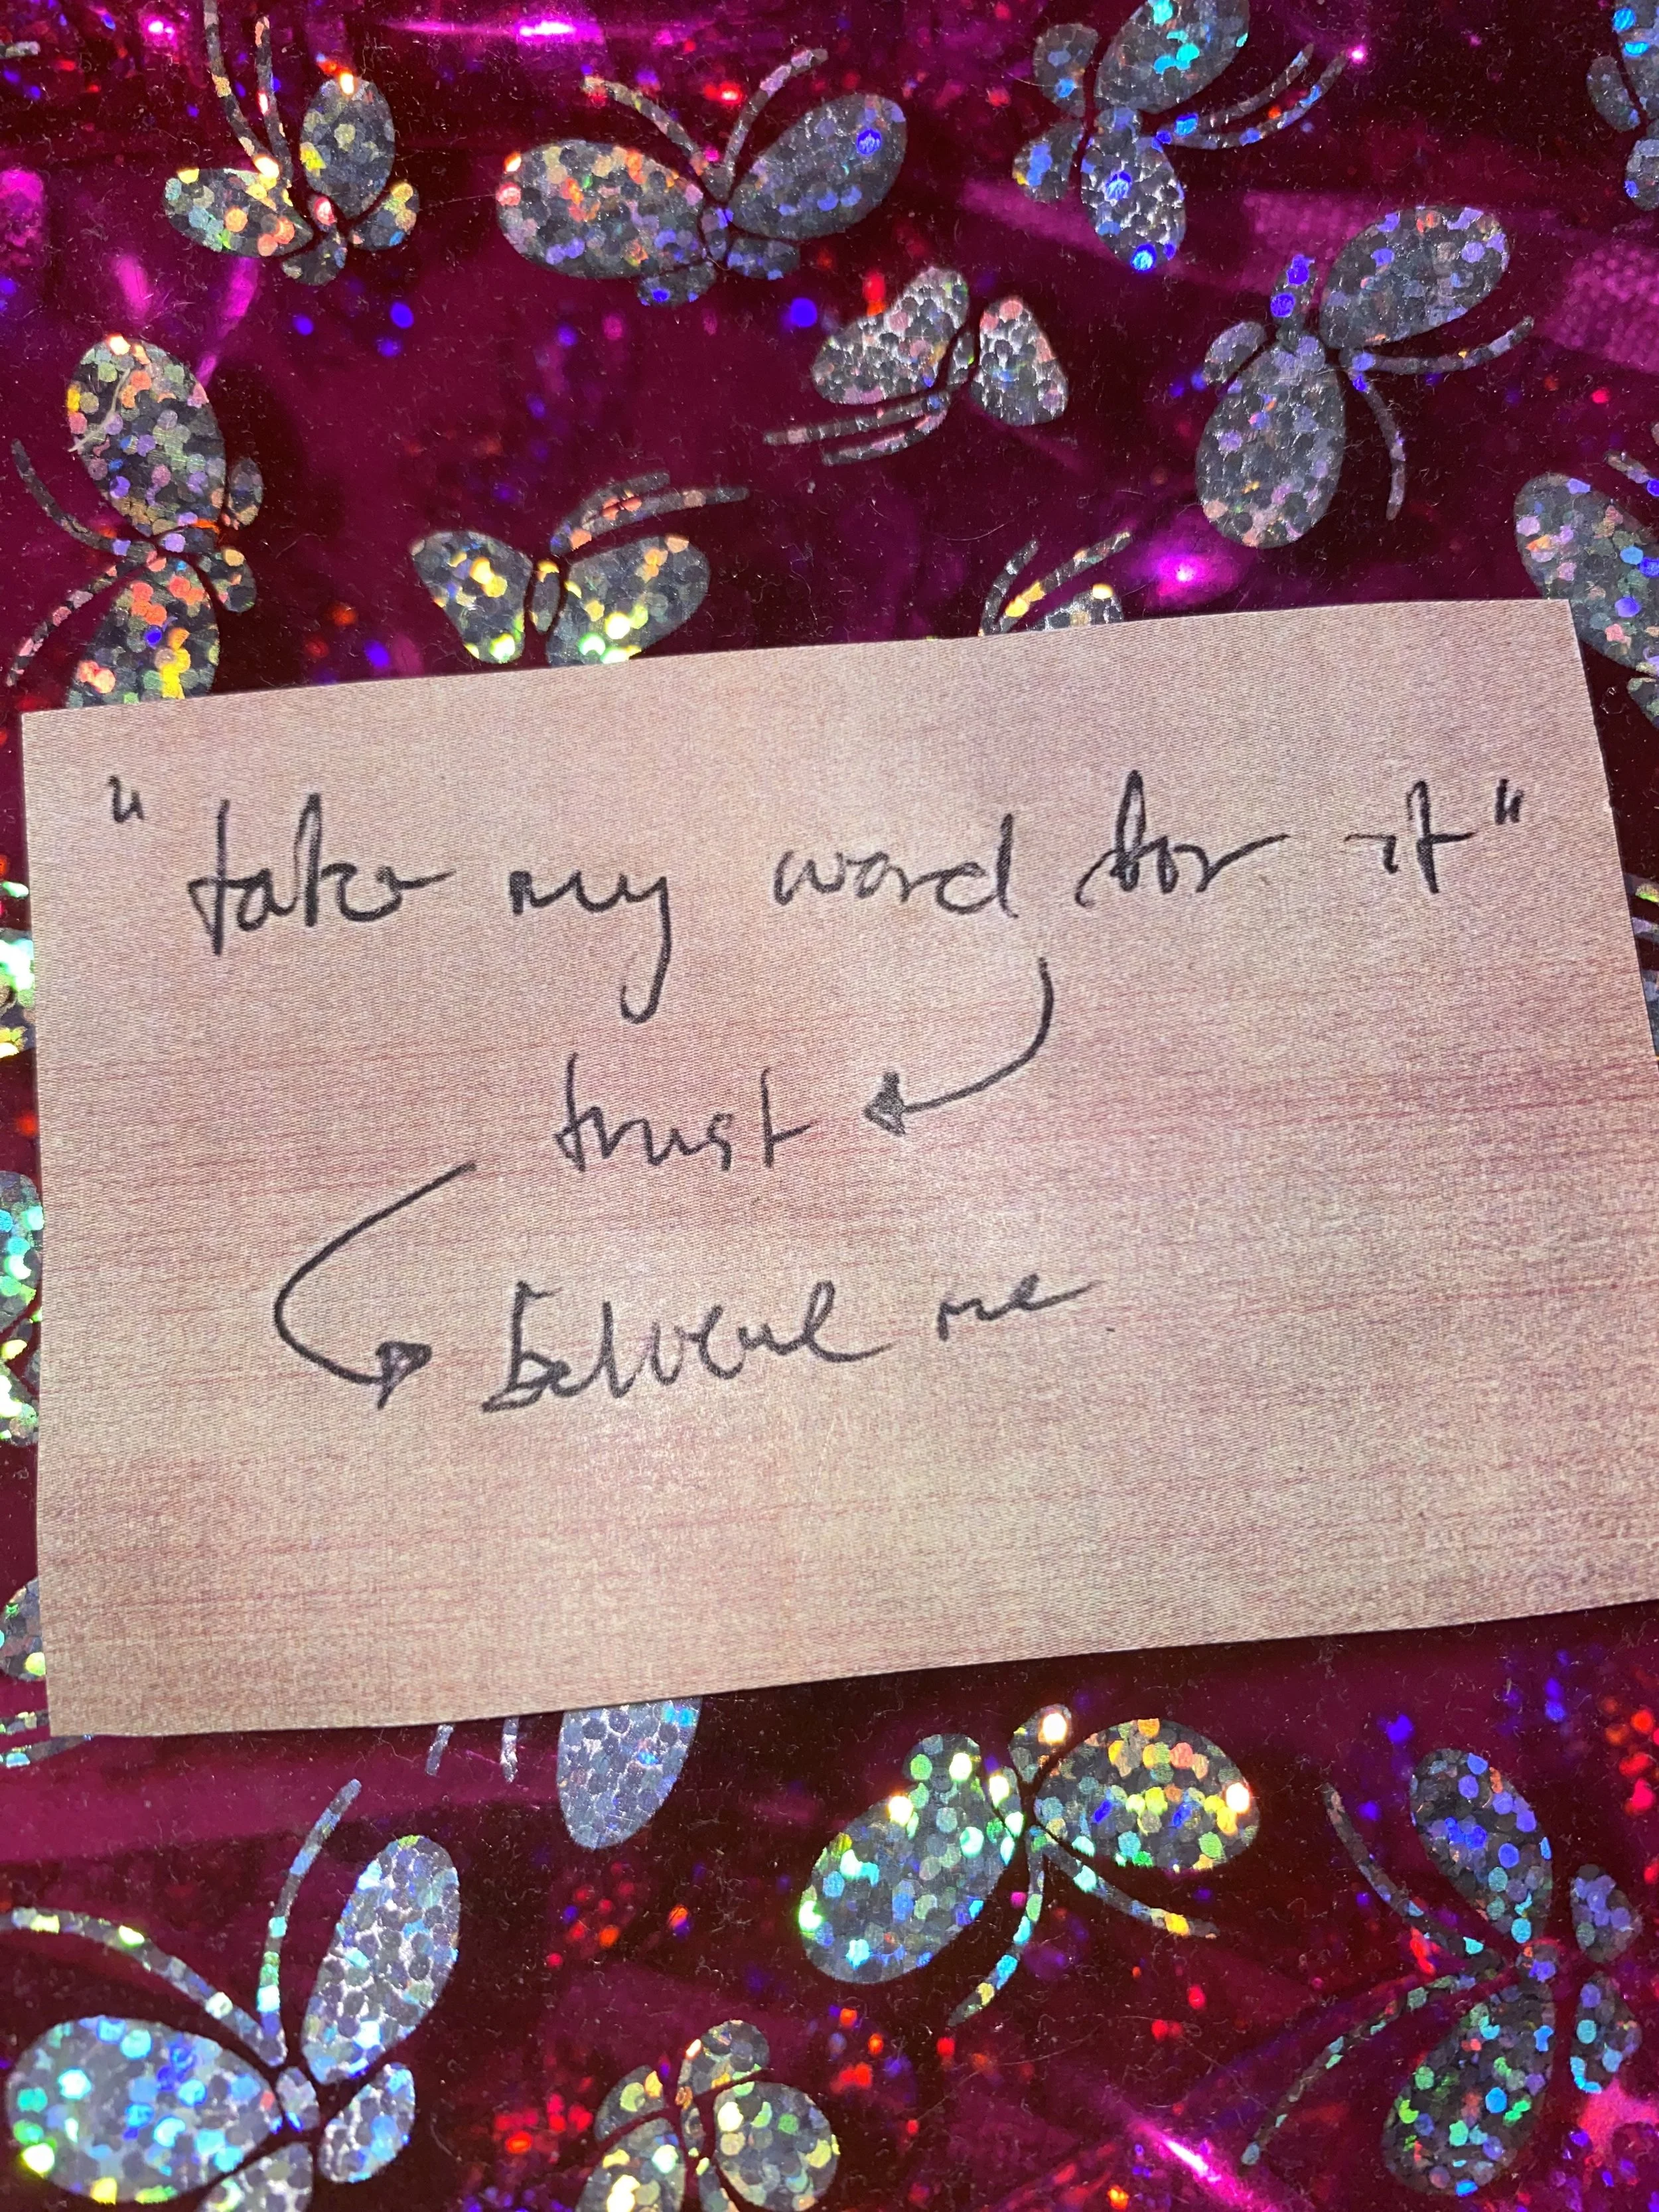 "take my word for it"
trust
believe me